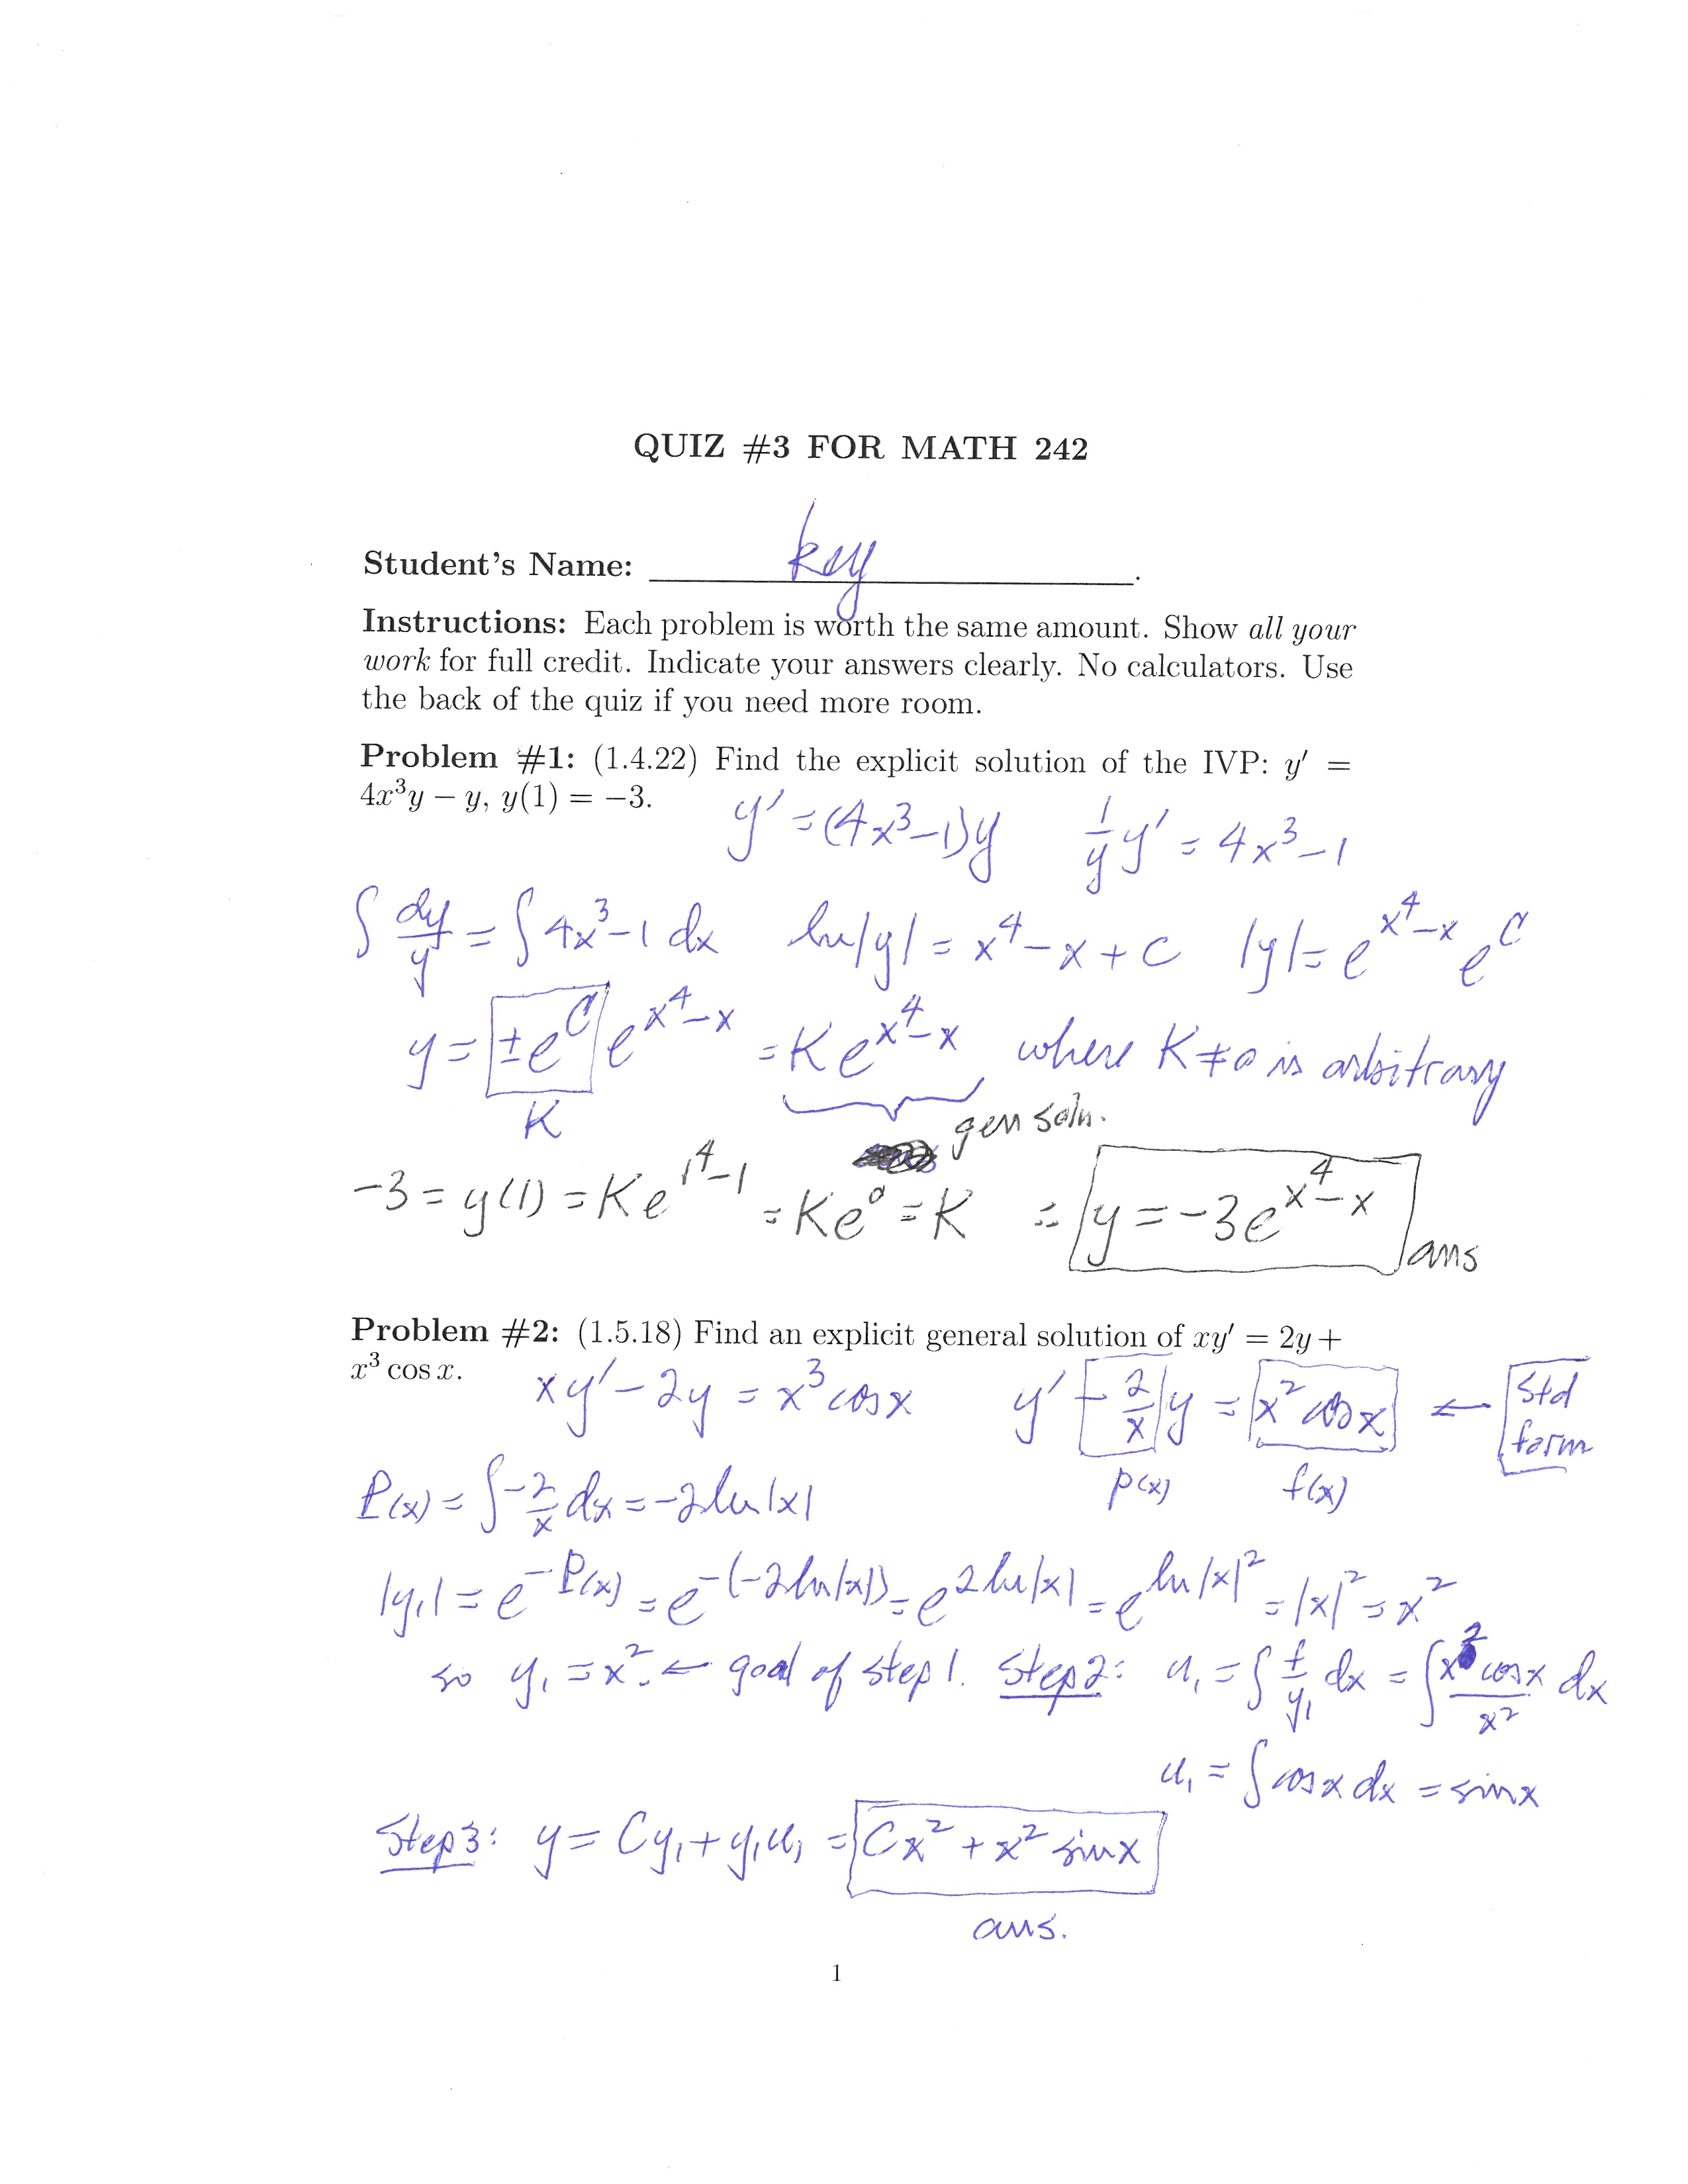 QUIZ #3 FOR MATH 242
Student's Name: key.
Instructions: Each problem is worth the same amount. Show all your
work for full credit. Indicate your answers clearly. No calculators. Use
the back of the quiz if you need more room.
Problem #1: (1.4.22) Find the explicit solution of the IVP: y′ =
4x³y − y, y(1) = −3.
y′ = (4x³−1)y   1/y y′ = 4x³−1
∫ dy/y = ∫ 4x³−1 dx   ln|y| = x⁴ − x + C   |y| = e^(x⁴−x) e^C
y = ±e^C e^(x⁴−x) = K e^(x⁴−x) where K ≠ 0 is arbitrary
K
gen soln.
−3 = y(1) = K e^(1⁴−1) = K e⁰ = K ∴ y = −3e^(x⁴−x)
ans
Problem #2: (1.5.18) Find an explicit general solution of xy′ = 2y +
x³ cos x.
xy′ − 2y = x³ cos x   y′ − 2/x y = x² cos x ← Std form
p(x)   f(x)
P(x) = ∫ −2/x dx = −2 ln|x|
|y₁| = e^(−P(x)) = e^(−(−2ln|x|)) = e^(2 ln|x|) = e^(ln|x|²) = |x|² = x²
so y₁ = x². ← goal of step 1. Step 2: u₁ = ∫ f/y₁ dx = ∫ x² cos x / x² dx
u₁ = ∫ cos x dx = sin x
Step 3: y = Cy₁ + y₁u₁ = Cx² + x² sin x
ans.
1